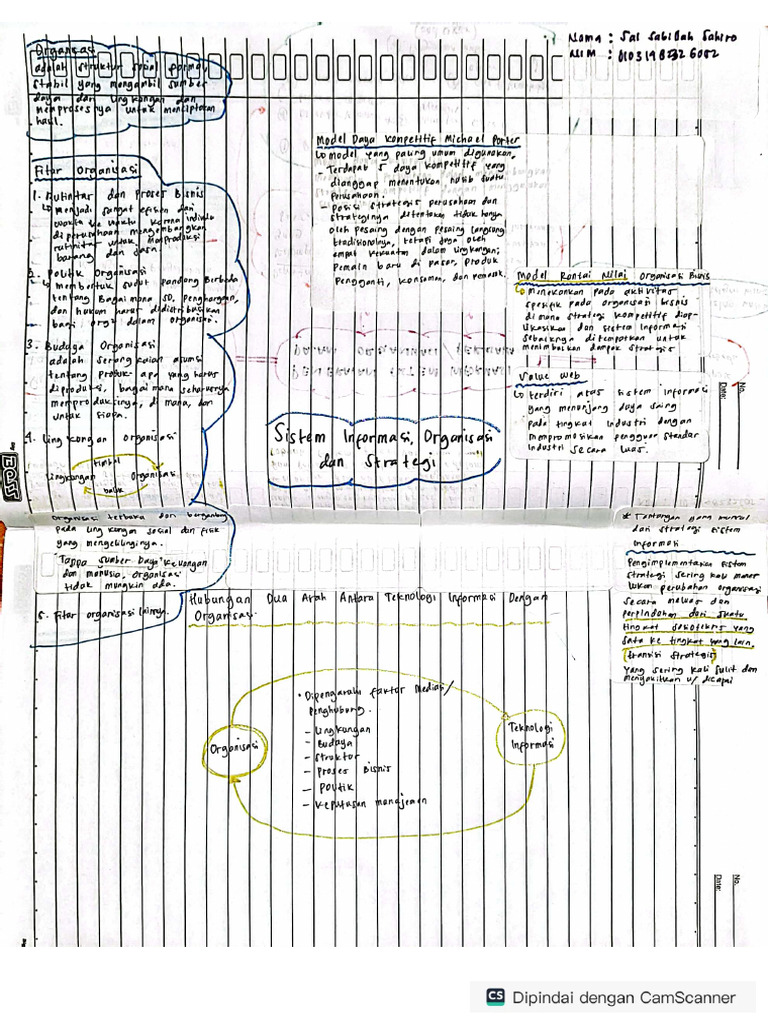 Nama : Sal Sabilah Sahiro
NIM :
Organisasi
adalah struktur sosial formal,
stabil yang mengambil sumber
daya dari lingkungan dan
memprosesnya untuk menciptakan
hasil.
Fitur Organisasi
1. Rutinitas dan Proses Bisnis
menjadi sangat efisien dari
waktu ke waktu karna individu
diperusahaan mengembangkan
rutinitas untuk memproduksi
barang dan jasa
2. Politik Organisasi
membentuk sudut pandang Berbeda
tentang Bagaimana SD, Penghargaan,
dan hukum harus didistribusikan
bagi org2 dalam organisasi.
3. Budaya Organisasi
adalah serangkaian asumsi
tentang produk apa yang harus
diproduksi, bagaimana seharusnya
memproduksinya, dimana, dan
untuk siapa.
4. Lingkungan organisasi
timbal
Lingkungan Organisasi
balik
Organisasi terbuka dan bergantung
pada lingkungan sosial dan fisik
yang mengelilinginya.
Tanpa sumber Daya keuangan
dan manusia, organisasi
tidak mungkin ada.
5. Fitur organisasi lainny.
Model Daya Kompetitif Michael Porter
model yang paling umum digunakan.
- Terdapat 5 daya kompetitif yang
dianggap menentukan nasib suatu
perusahaan.
- Posisi strategis perusahaan dan
strateginya ditentukan tidak hanya
oleh pesaing dengan pesaing langsung
tradisionalnya, tetapi juga oleh
empat kekuatan dalam lingkungan;
Pemain baru di pasar, produk
Pengganti, konsumen, dan pemasok.
Model Rantai Nilai Organisasi Bisnis
menekankan pada aktivitas
spesifik pada organisasi bisnis
di mana strategi kompetitif diap-
likasikan dan sistem informasi
sebaiknya ditempatkan untuk
menimbulkan dampak strategis
Value Web
terdiri atas sistem informasi
yang menunjang daya saing
pada tingkat industri dengan
mempromosikan standar
industri secara luas.
Sistem Informasi, Organisasi
dan Strategi
* Tantangan yang muncul
dari strategi sistem
informasi
Pengimplementasian sistem
strategi sering kali memer
lukan perubahan organisasi
secara meluas dan
perpindahan dari suatu
tingkat sosioteknis yang
satu ke tingkat yang lain.
(transisi strategis)
yang sering kali sulit dan
menyakitkan u/ dicapai
Hubungan Dua Arah Antara Teknologi Informasi Dengan
Organisasi.
• Dipengaruhi faktor Mediasi/
Penghubung.
- Lingkungan
- Budaya
- Struktur
- Proses Bisnis
- Politik
- Keputusan manajemen
Organisasi
Teknologi
Informasi
No.
Date:
No.
Date:
BOSS
CS Dipindai dengan CamScanner